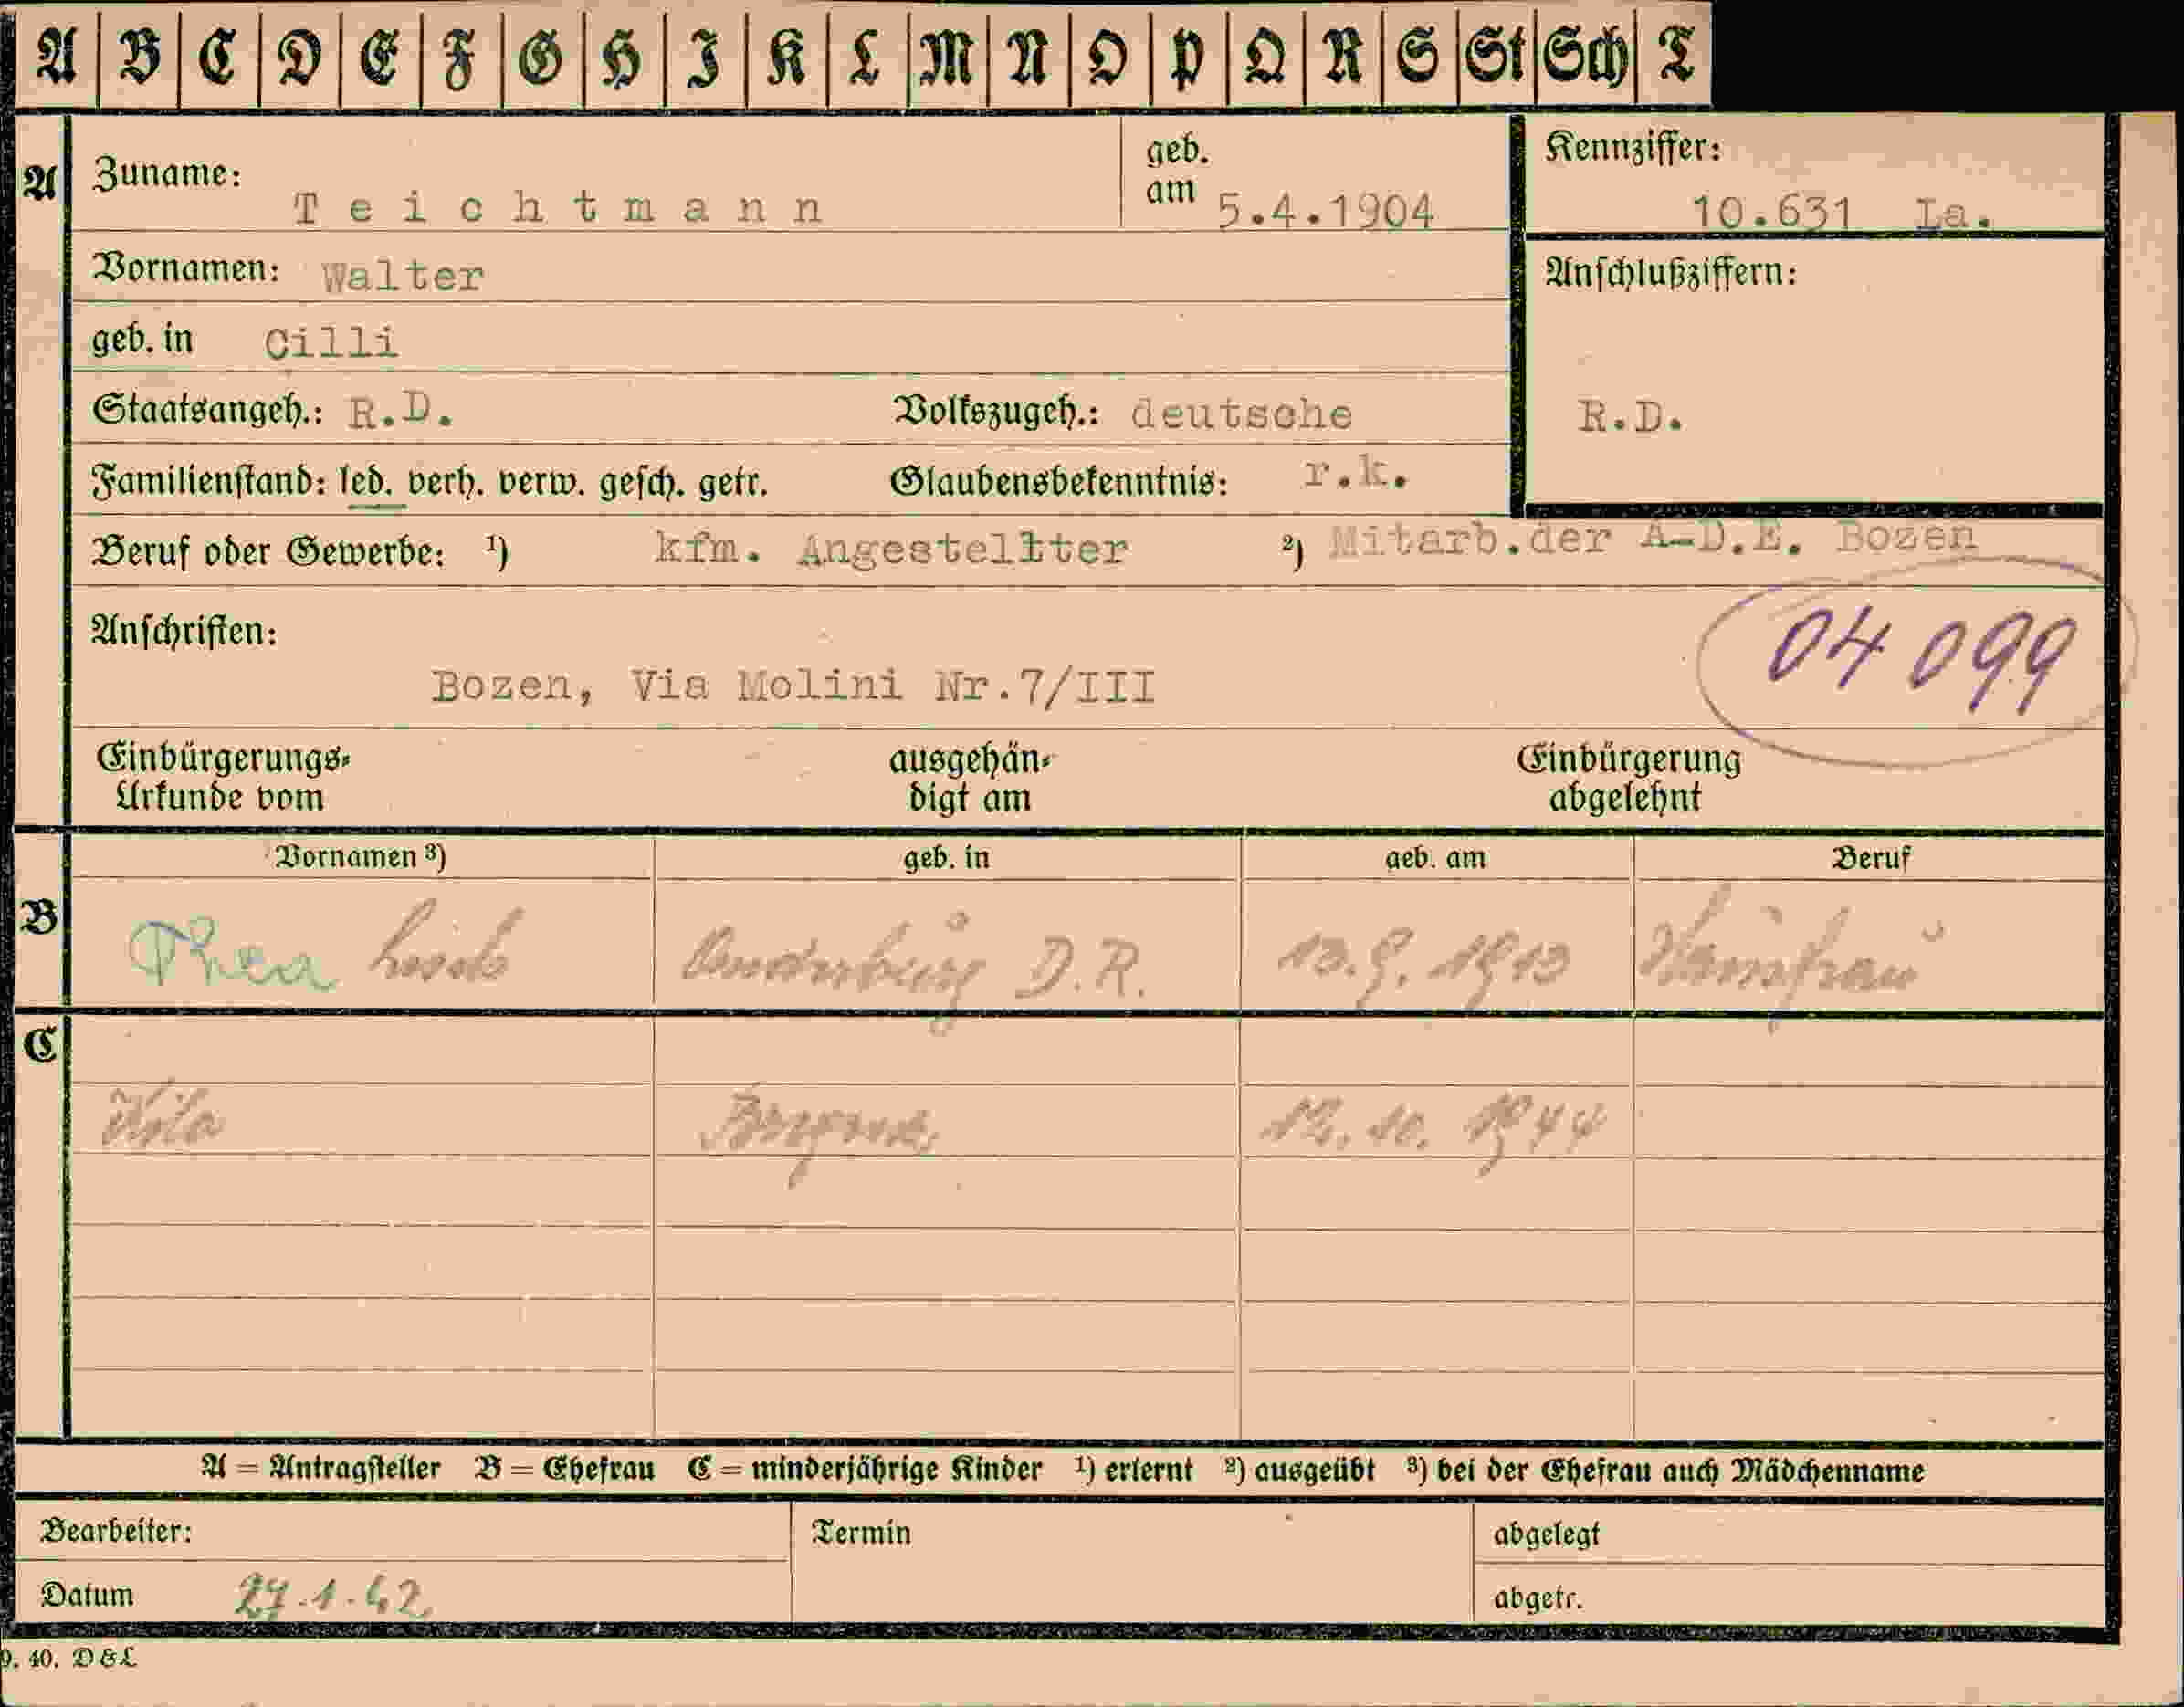 A B C D E F G H I K L M N O P Q R S St Sch T
A Zuname: Teichtmann geb. am 5.4.1904 Kennziffer: 10.631 Ia.
Vornamen: Walter Anschlußziffern:
geb. in Cilli
Staatsangeh.: R.D. Volkszugeh.: deutsche R.D.
Familienstand: led. verh. verw. gesch. getr. Glaubensbekenntnis: r.k.
Beruf oder Gewerbe: ¹) kfm. Angestellter ²) Mitarb.der A-D.E. Bozen
Anschriften: 04 099
Bozen, Via Molini Nr.7/III
Einbürgerungs- ausgehän- Einbürgerung
Urkunde vom digt am abgelehnt
Vornamen ³) geb. in geb. am Beruf
B Thea D.R. 13.9.1913 Hausfrau
C
12.10.1944
A = Antragsteller B = Ehefrau C = minderjährige Kinder ¹) erlernt ²) ausgeübt ³) bei der Ehefrau auch Mädchenname
Bearbeiter: Termin abgelegt
Datum 27.1.42 abgetr.
9. 40. D & L